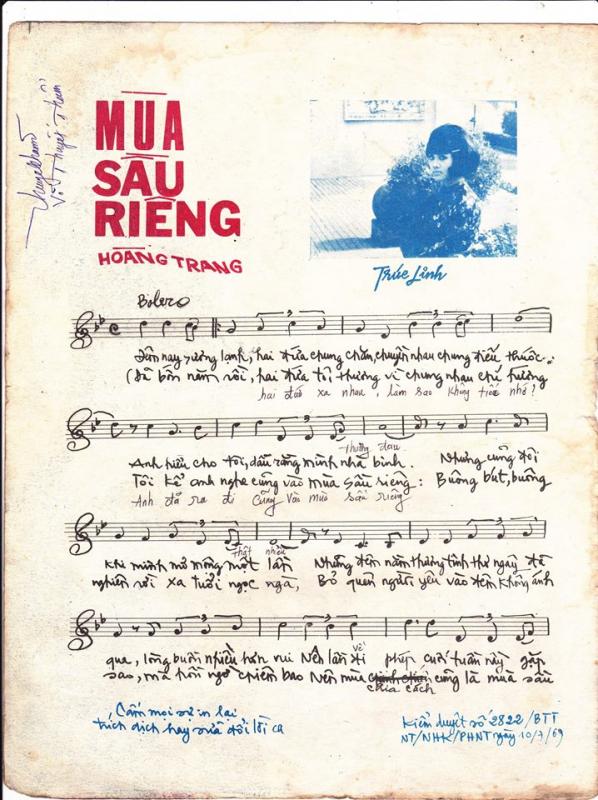 MÙA
SẦU
RIÊNG
HOÀNG TRANG
Trúc Linh
Bolero
Đêm nay sương lạnh, hai đứa chung chăn, chuyện nhau chung điếu thuốc.
(Đã bốn năm rồi, hai đứa tôi thương vì chung nhau chí hướng
hai đứa xa nhau, làm sao không tiếc nhớ?
thường đau
Anh hiểu cho tôi, dẫu rằng mình nhà binh. Nhưng cũng đôi
Tôi kể anh nghe cũng vào mùa sầu riêng: Buông bút, buông
Anh đã ra đi cũng vào mùa sầu riêng
thật nhiều
khi mình mơ mộng một lần Những đêm nằm thương tình thư ngày đã
nghiên rồi xa tuổi ngọc ngà, Bỏ quên người yêu vào đêm không ánh
về
qua, lòng buồn nhiều hơn vui Nên lần đi phép cuối tuần này gặp
sao, mà hồi ngỡ chiêm bao Nên mùa cũng là mùa sầu
chia cách
Cấm mọi sự in lại
trích dịch hay sửa đổi lời ca
Kiểm duyệt số 2822/BTT
NT/NHK/PHNT ngày 10/7/69